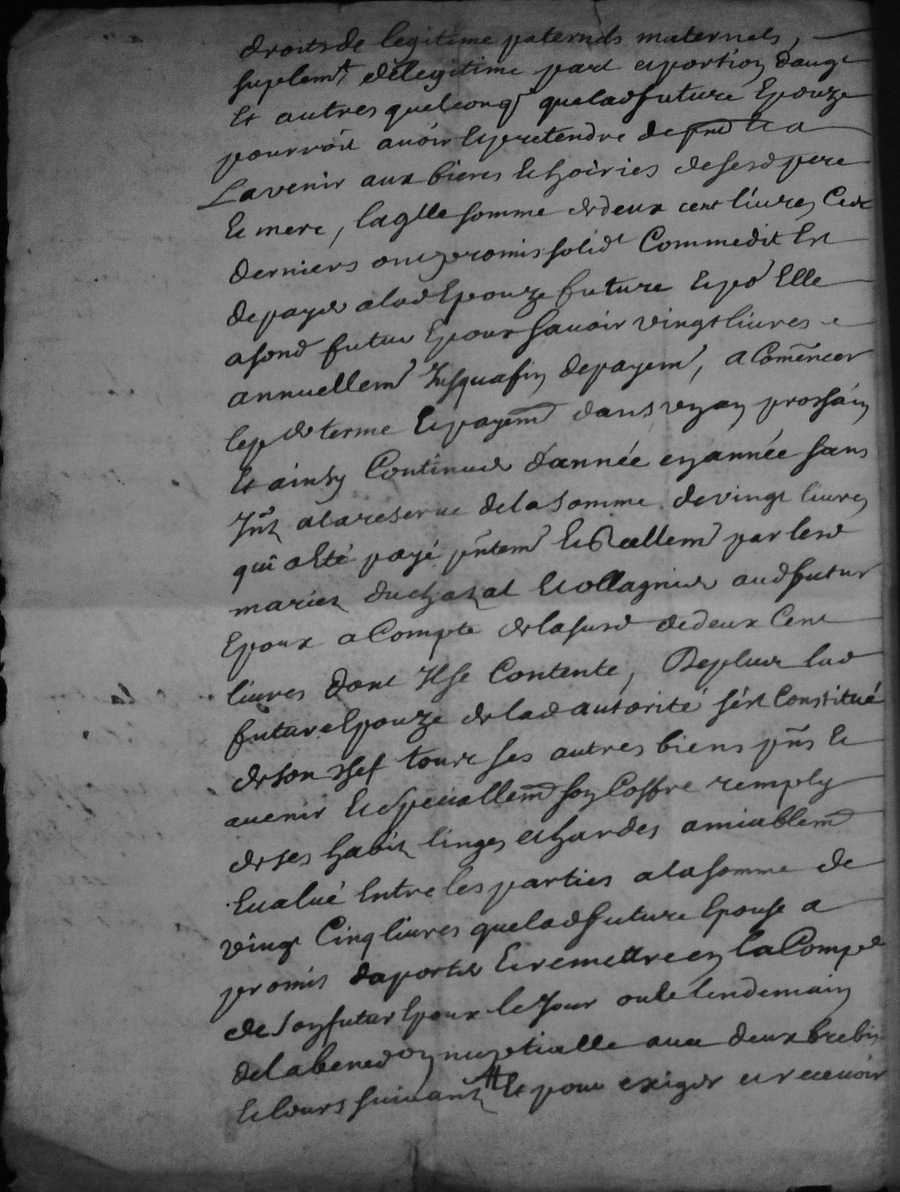 droits de legitime paternels maternels,
suplemt de legitime part et portion d'augt
Et autres quelconq que lad future Epouze
pourroit avoir Et pretendre de pnt Et a
Lavenir aux biens Et hoiries de sesd pere
Et mere, laqlle somme de deux cent livres Ces
derniers ont promis solidt Comme dit Est
de payer a lad Epouze future Et po Elle
a sond futur Epoux savoir vingt livres
annuellemt Jusqu a fin de payemt, a Comencer
le pr de terme Et payemt dans un an prochain
Et ainsy Continuer d'année en année sans
Intz a la reserve de la somme de vingt livres
qui a Eté payé pntemt Et Reellemt par lesd
mariez duchazal Et ollagnier aud futur
Epoux a Compte de la susd de deux Cent
livres dont Il se Contente, De plus lad
future Epouze de lad autorité s'est Constitué
de son chef tous ses autres biens pns Et
avenir Et speciallemt son Coffre remply
de ses habitz linges Et hardes amiablemt
Evalué Entre les parties a la somme de
vingt Cinq livres que lad future Epouse a
promis d'aporter Et remettre en la Compe
de son futur Epoux le Jour ou le lendemain
de la benedon nuptialle avec deux brebis
Et leurs suivantz Et pour exiger et recevoir